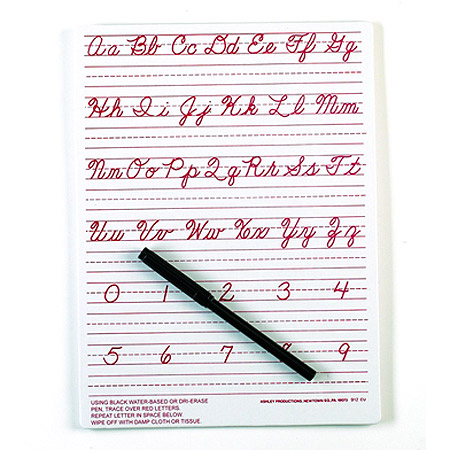 Aa Bb Cc Dd Ee Ff Gg
Hh Ii Jj Kk Ll Mm
Nn Oo Pp Qq Rr Ss Tt
Uu Vv Ww Xx Yy Zz
0 1 2 3 4
5 6 7 8 9
USING BLACK WATER-BASED OR DRI-ERASE
PEN, TRACE OVER RED LETTERS.
REPEAT LETTER IN SPACE BELOW
WIPE OFF WITH DAMP CLOTH OR TISSUE.
ASHLEY PRODUCTIONS, NEWTOWN SQ., PA. 19073